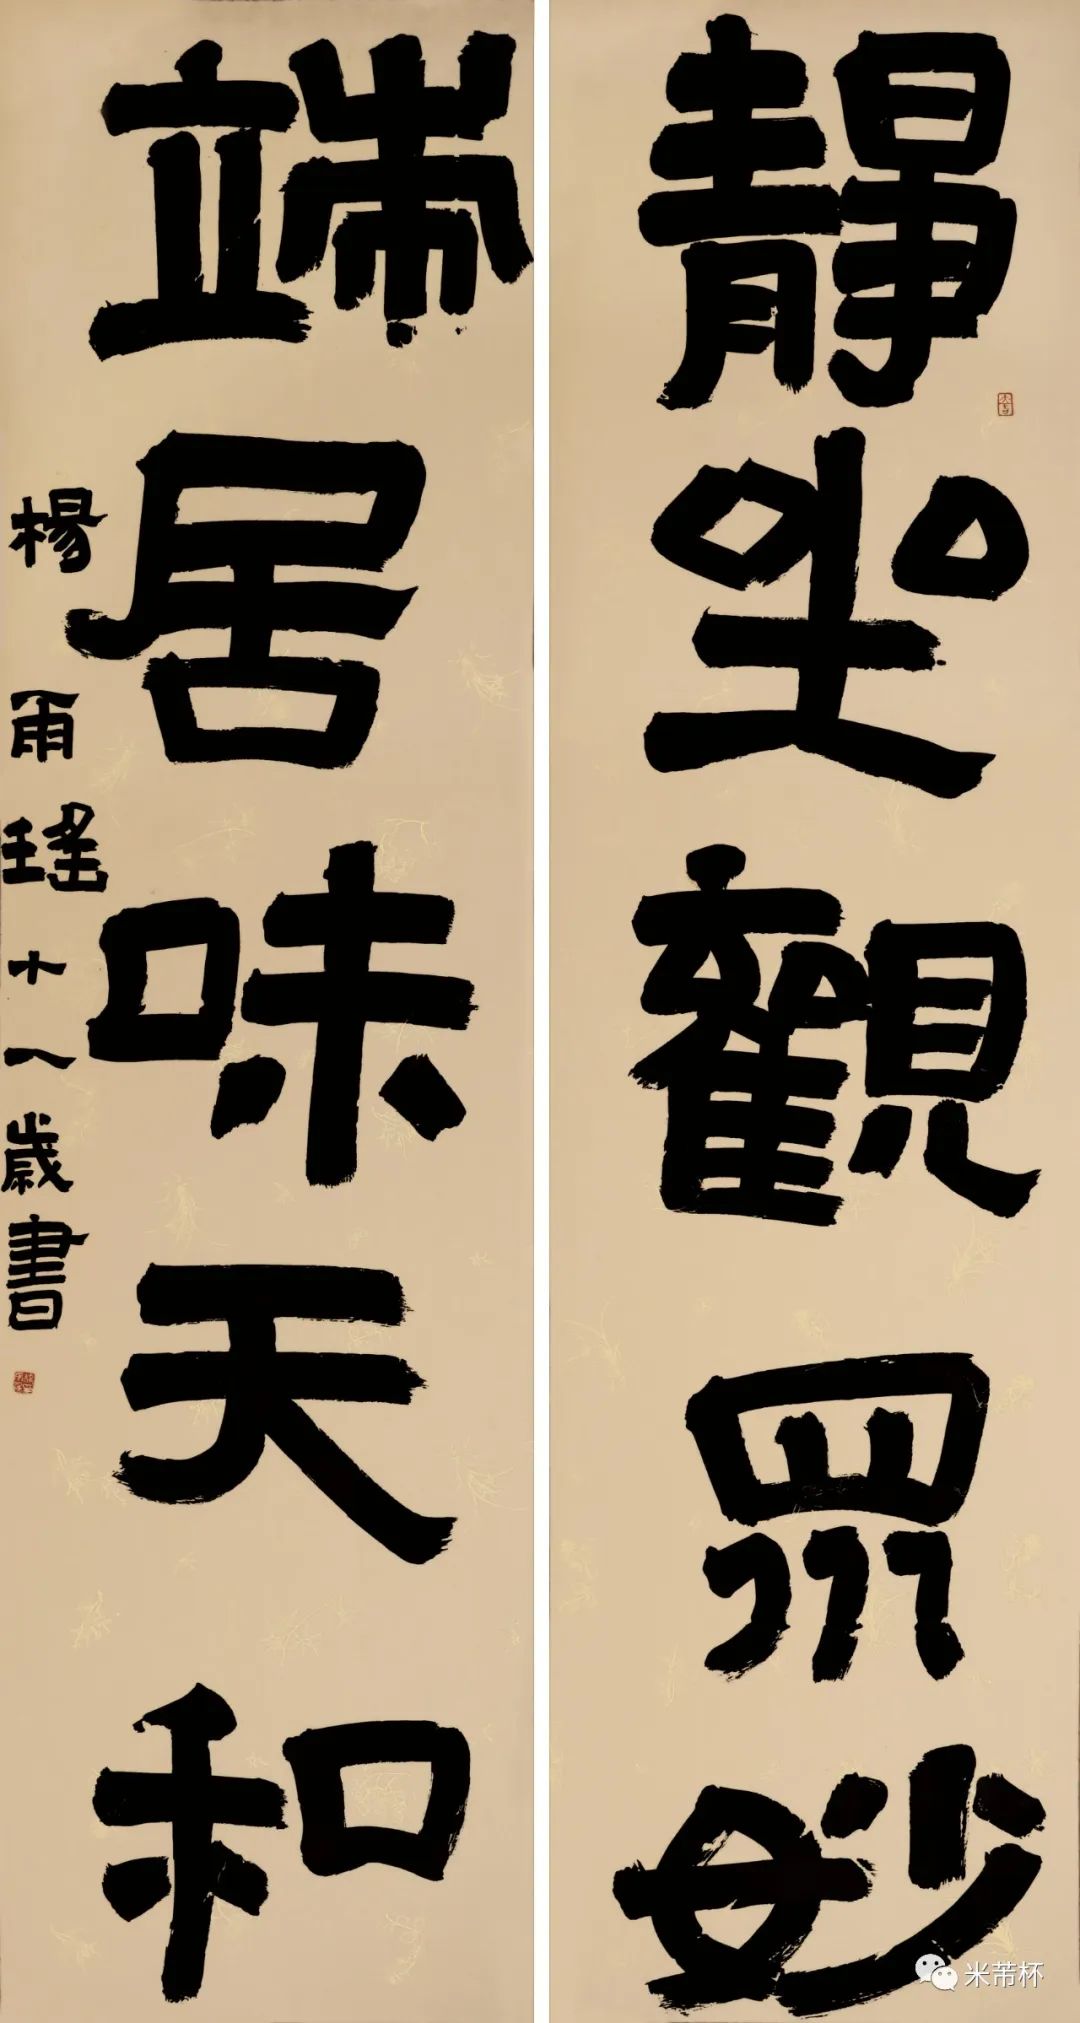 靜坐觀眾妙
端居味天和
楊雨瑤十八歲書
米芾杯